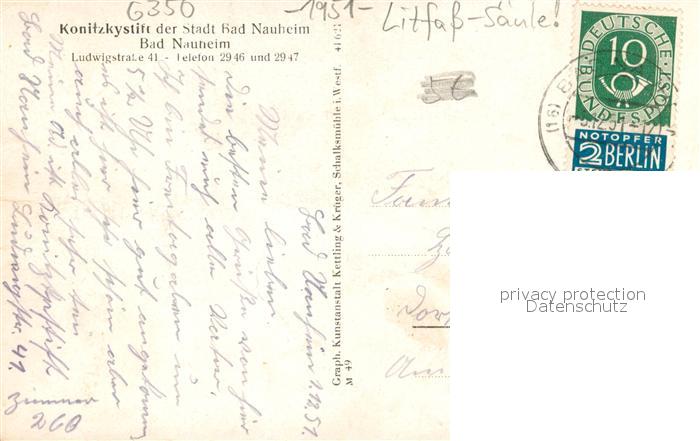 G350
-1951-
Litfaß-Säule!
Konitzkystift der Stadt Bad Nauheim
Bad Nauheim
Ludwigstraße 41 - Telefon 2946 und 2947
DEUTSCHE
BUNDESPOST
10
NOTOPFER
2 BERLIN
(16)
Graph. Kunstanstalt Kettling & Krüger, Schalksmühle i. Westf.
M 49
Bad Nauheim 1.12.51.
Meine Lieben.
Die besten Grüße von hier
sendet euch alle Vater.
Ich bin Freitagabend um
5 ½ Uhr hier gut angekommen
es ist hier sehr schön aber
auch alles sehr
Meine Adr. ist Konitzkystift
Bad Nauheim Ludwigstr. 41.
Zimmer
260
privacy protection
Datenschutz